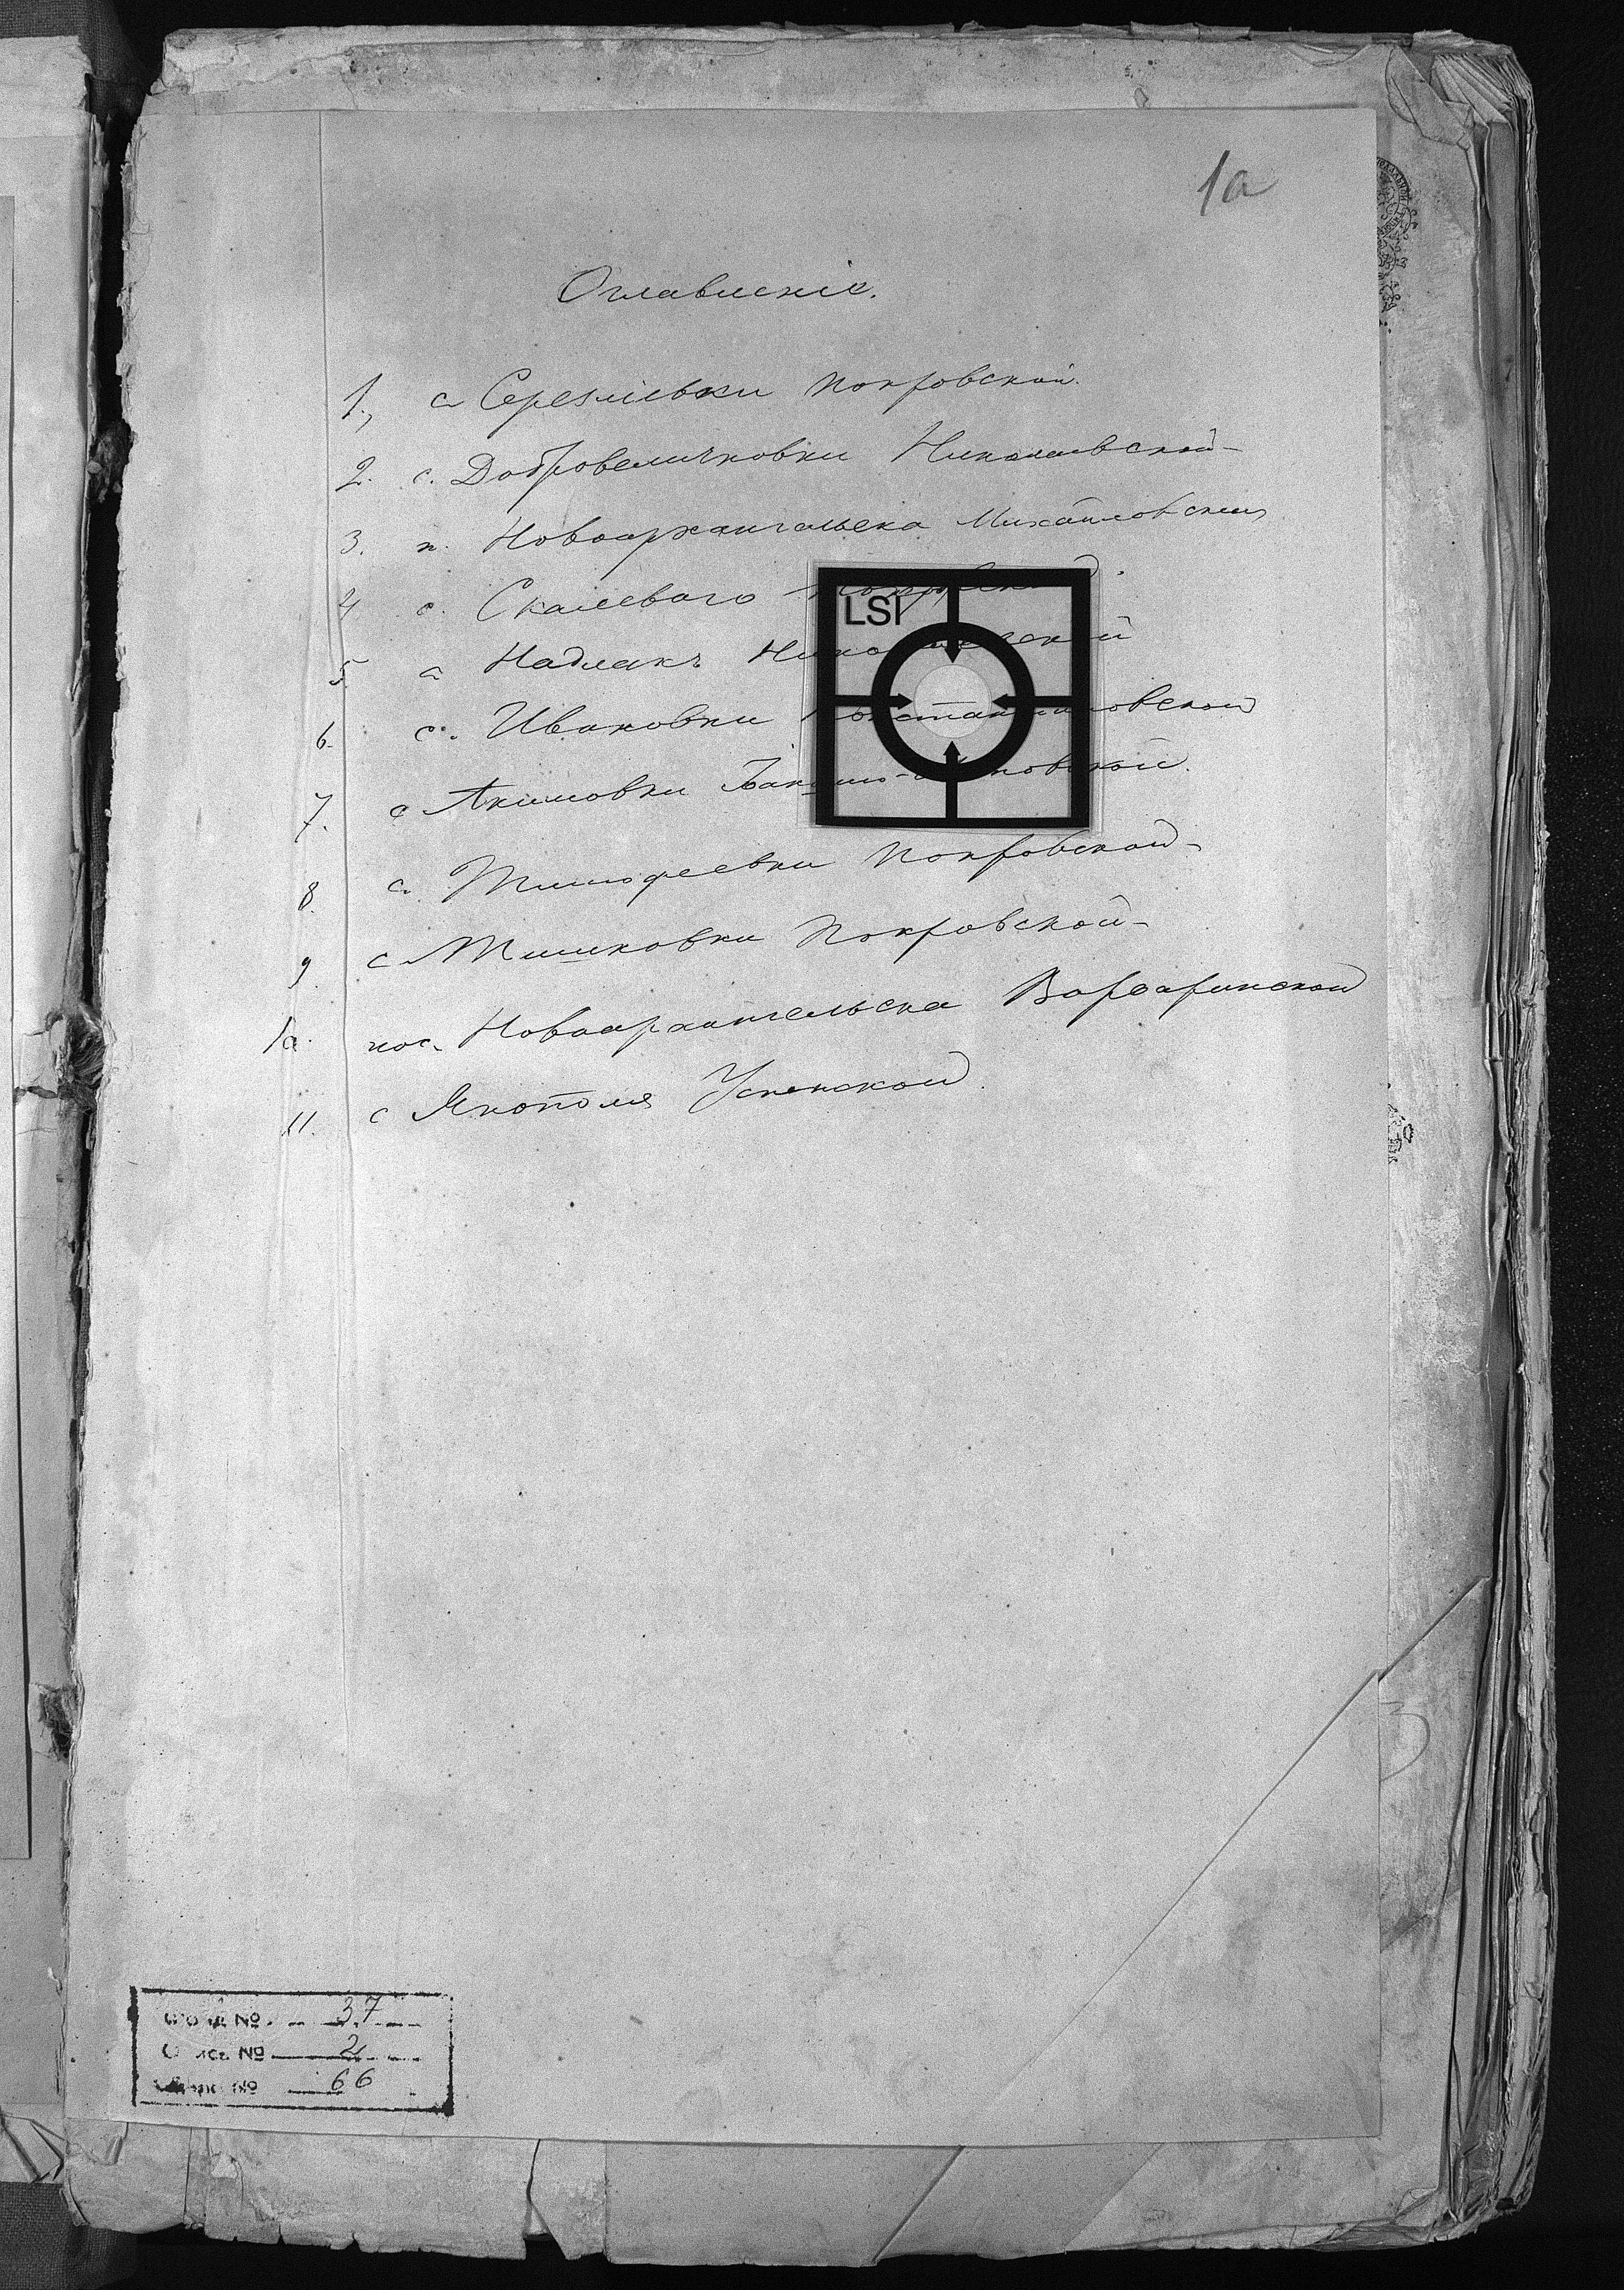 1а
Оглавленіе.
1., с Серезлiевки Покровской.
2. с. Добровеличковки Николаевской
3. п. Новоархангельска Михайловской
4 с. Скалеваго
LSI
5. с Надлакъ Николаевской
6. с. Ивановки Константиновской
7. с Акимовки
8. с. Тимофеевки Покровской
9. с Тишковки Покровской
10. пос. Новоархангельска Варваринской
11. с Янополя Успенской.
Фонд № 37
Опись № 2
№ 66